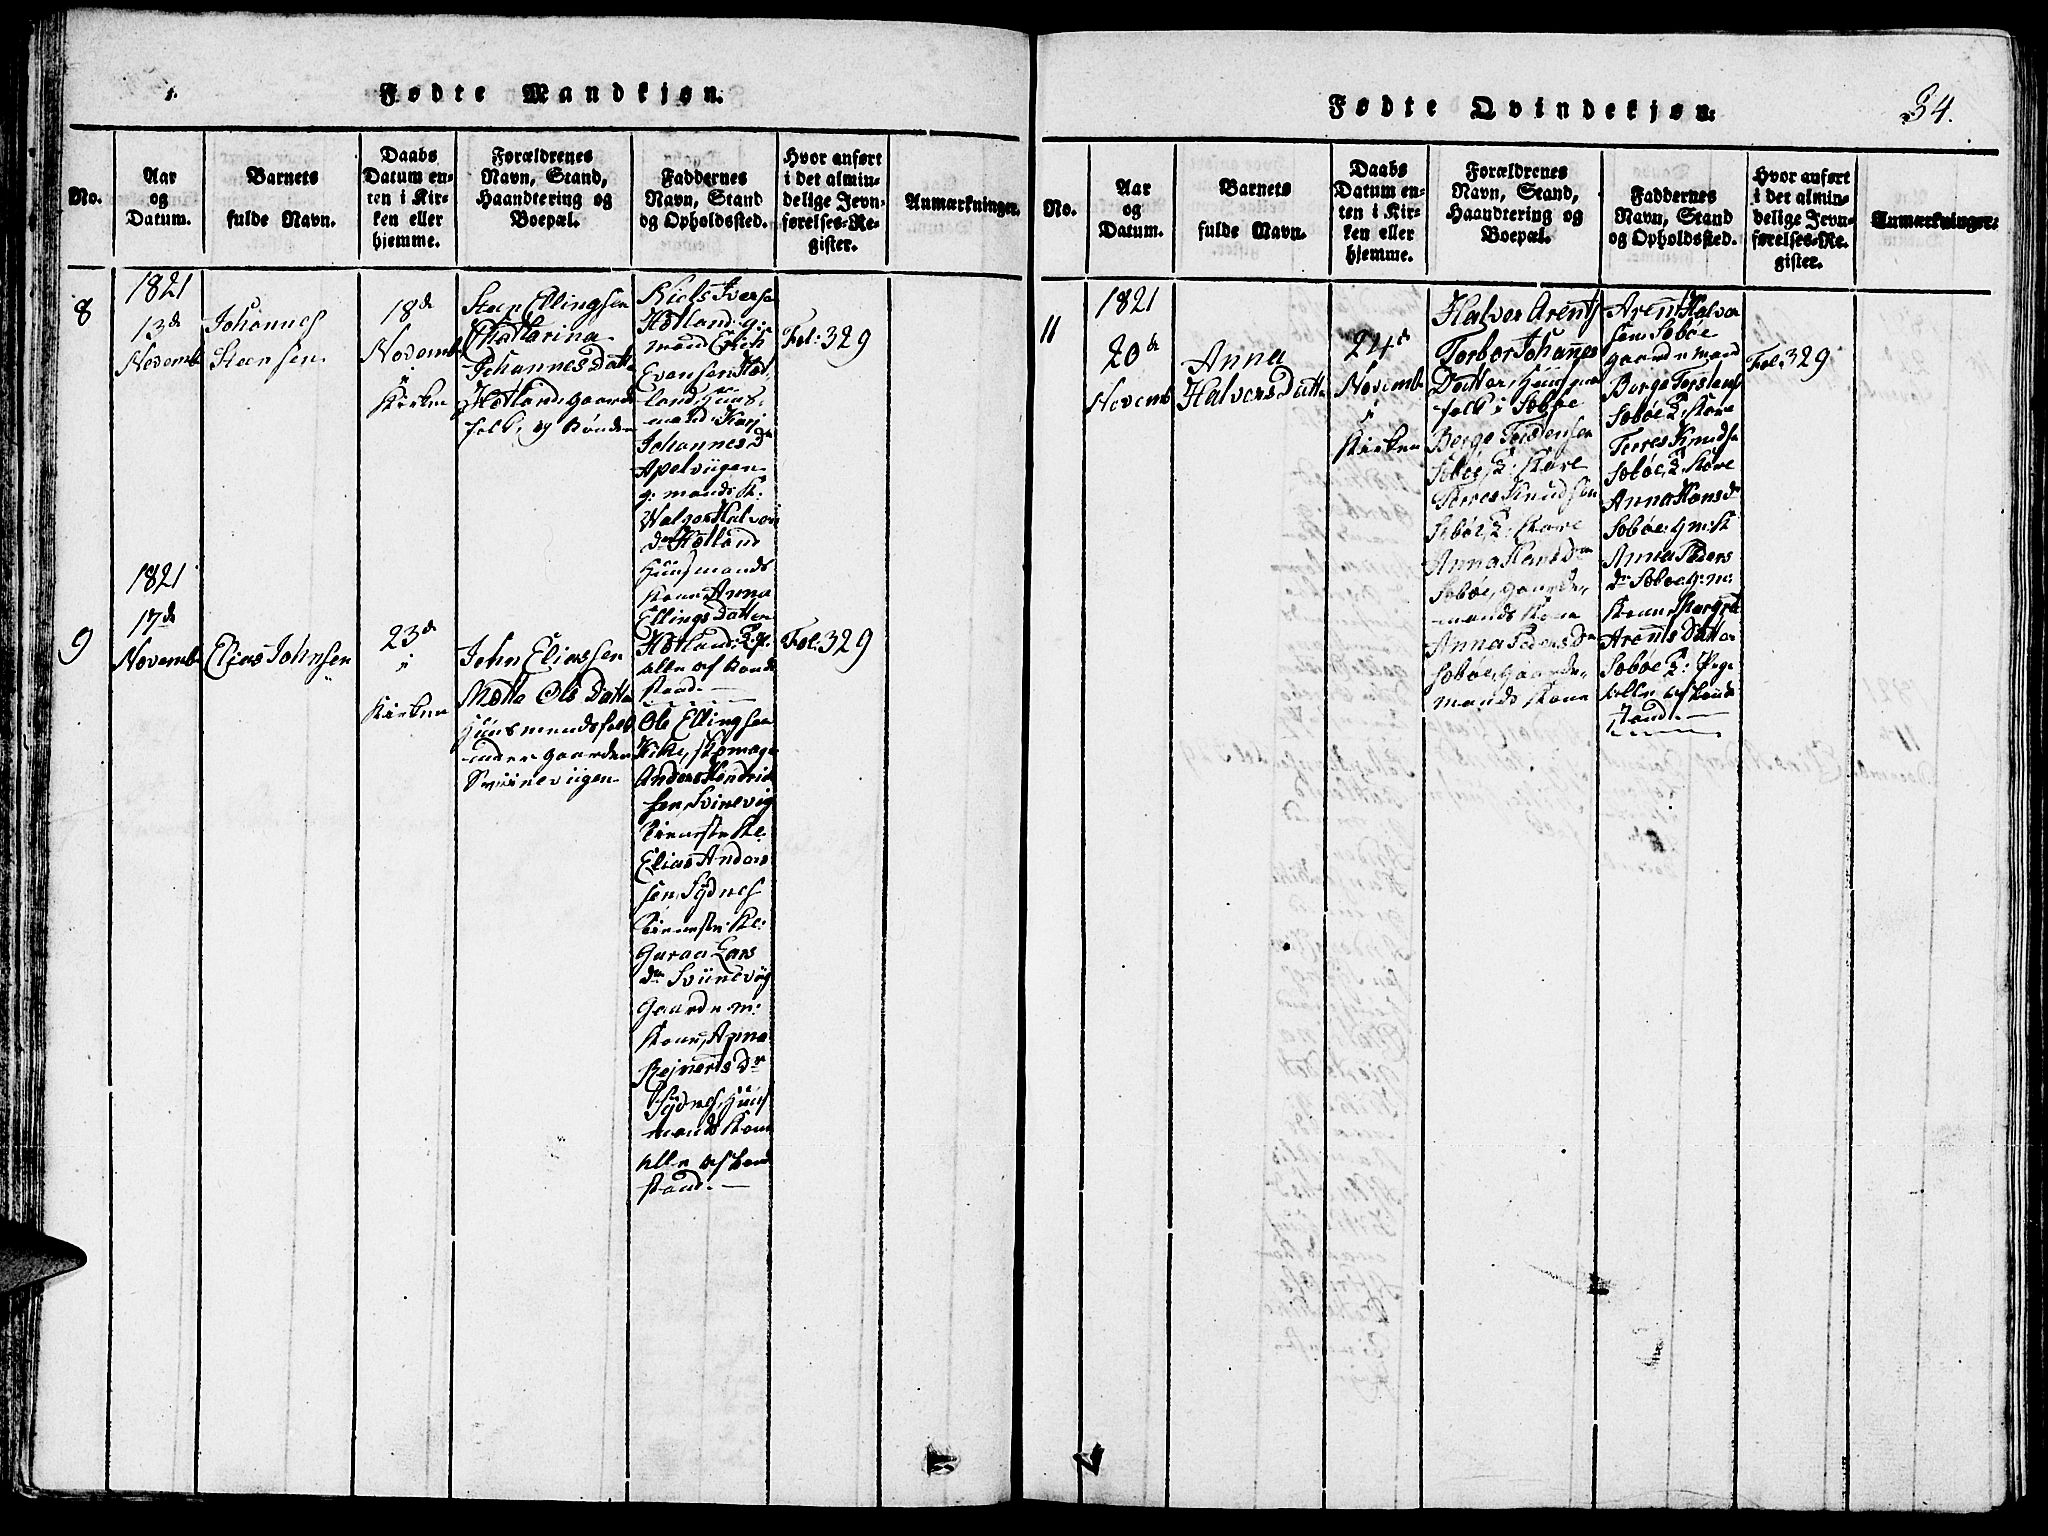 Fødte Mandkjøn.
No.
Aar
og
Datum.
Barnets
fulde Navn.
Daabs
Datum en-
ten i Kir-
ken eller
hjemme.
Forældrenes
Navn, Stand,
Haandtering og
Boepæl.
Faddernes
Navn, Stand
og Opholdssted.
Hvor anført
i det almin-
delige Jevn-
førelses-Re-
gister.
Anmærkninger.
8
1821
13de
Novemb
Johannes
Steensen
18de
Novemb
i
Kirken
Steen Ellingsen
Cathatarina
Johannes Datt
Hotland, gaard
folk, og Bønder
Niels Iverse
Hotland g:
mand Erich
Evensen Hot
land Huus
mand Karj
Johannes Dr
Apelviigen
g: mands K:
Halvor
dr Hotland
Huusmands
Kone, Anna
Ellings Datter
Hotland
alle af Bonde
stand.
Fol: 329
9
1821
17de
Novemb
Elias Johnsen
23de
i
Kirken
John Eliassen
Metta Ols Datte
Huusmandsfolk
under gaarden
Sviineviigen
Ole Ellingsen
Anders Hendrik
sen, Svinevig
Elias Anders
sen, Sÿdnes
Guroe Lars
dr Sviinevig
Gaard m:
Kone, Anna
Rejnerts Dr
Sÿdnes, Huus
mands Kone
alle af Bond
stand.
Fol: 329
Fødte Qvindekjøn.
34.
No.
Aar
og
Datum.
Barnets
fulde Navn.
Daabs
Datum en-
ten i Kir-
ken eller
hjemme.
Forældrenes
Navn, Stand,
Haandtering og
Boepæl.
Faddernes
Navn, Stand
og Opholdssted.
Hvor anført
i det almin-
delige Jevn-
førelses-Re-
gister.
Anmærkninger.
11
1821
20de
Novemb
Anna
Halvors Datte
24de
Novemb
i
Kirken
Halvor Arents
Torbor Johannes
Datter, Huusmd
folk i Sobøe
Berge Tostensen
Sobøe, Z: Kare
Torres Knudsen
Sobøe, Z: Kare
Anna Hans Dr
Sobøe, gaard
mands Kone
Anna Peders Dr
Sobøe, gaard
mands Kone
Arent Halvor
sen Sobøe
gaard mand
Berge Tostens
Sobøe Z: Kare
Torres Knudse
Sobøe, Z: Kare
Anna Hans dr
Sobøe, g: m: K
Anna Peders
dr Sobøe g: m:
Kone, Margret
Arents Datter
Sobøe Z: Pige
alle af Bonde
stand.
Fol: 329